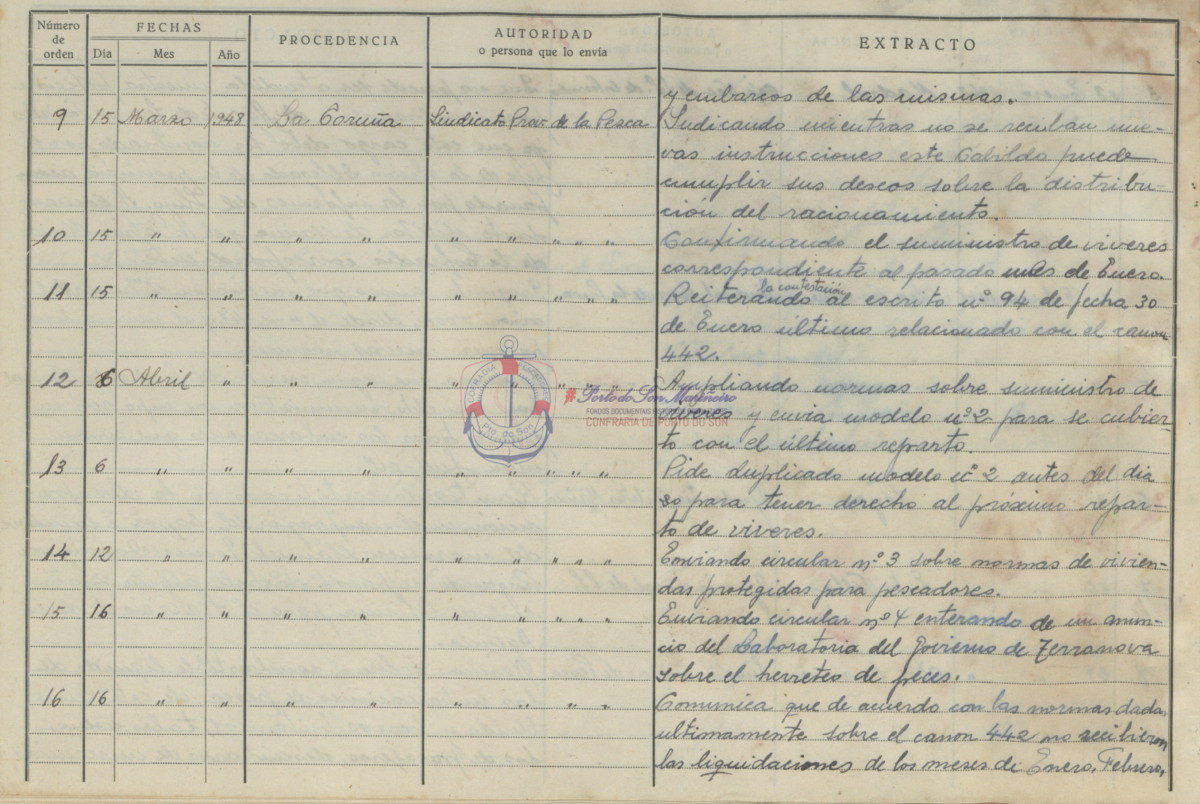 Número de orden
FECHAS
Día
Mes
Año
PROCEDENCIA
AUTORIDAD
o persona que lo envía
EXTRACTO
y embarcos de las mismas.
9 15 Marzo 1948 La Coruña Sindicato Prov. de la Pesca Indicando mientras no se reciban nue-
vas instrucciones este Cabildo puede
cumplir sus deseos sobre la distribu-
ción del racionamiento.
10 15 " " " " " " " " " Confirmando el suministro de viveres
correspondiente al pasado mes de Enero.
la contestación
11 15 " " " " " " " " " Reiterando al escrito nº 94 de fecha 30
de Enero último relacionado con el canon
442.
12 6 Abril " " " " " " " " Ampliando normas sobre suministro de
viveres y envia modelo nº 2 para se cubier-
to con el último reparto.
13 6 " " " " " " " " " Pide duplicado modelo nº 2 antes del dia
para tener derecho al próximo repar-
to de viveres.
14 12 " " " " " " " " " Enviando circular nº 3 sobre normas de vivien-
das protegidas para pescadores.
15 16 " " " " " " " " " Enviando circular nº 4 enterando de un anun-
cio del Laboratoria del Govierno de Terranova
sobre el herreteo de peces.
16 16 " " " " " " " " Comunica que de acuerdo con las normas dadas
ultimamente sobre el canon 442 no recibieron
las liquidaciones de los meses de Enero, Febrero,
#PortodoSonMariñeiro
CONFRARIA DE PORTO DO SON
Pto. do Son